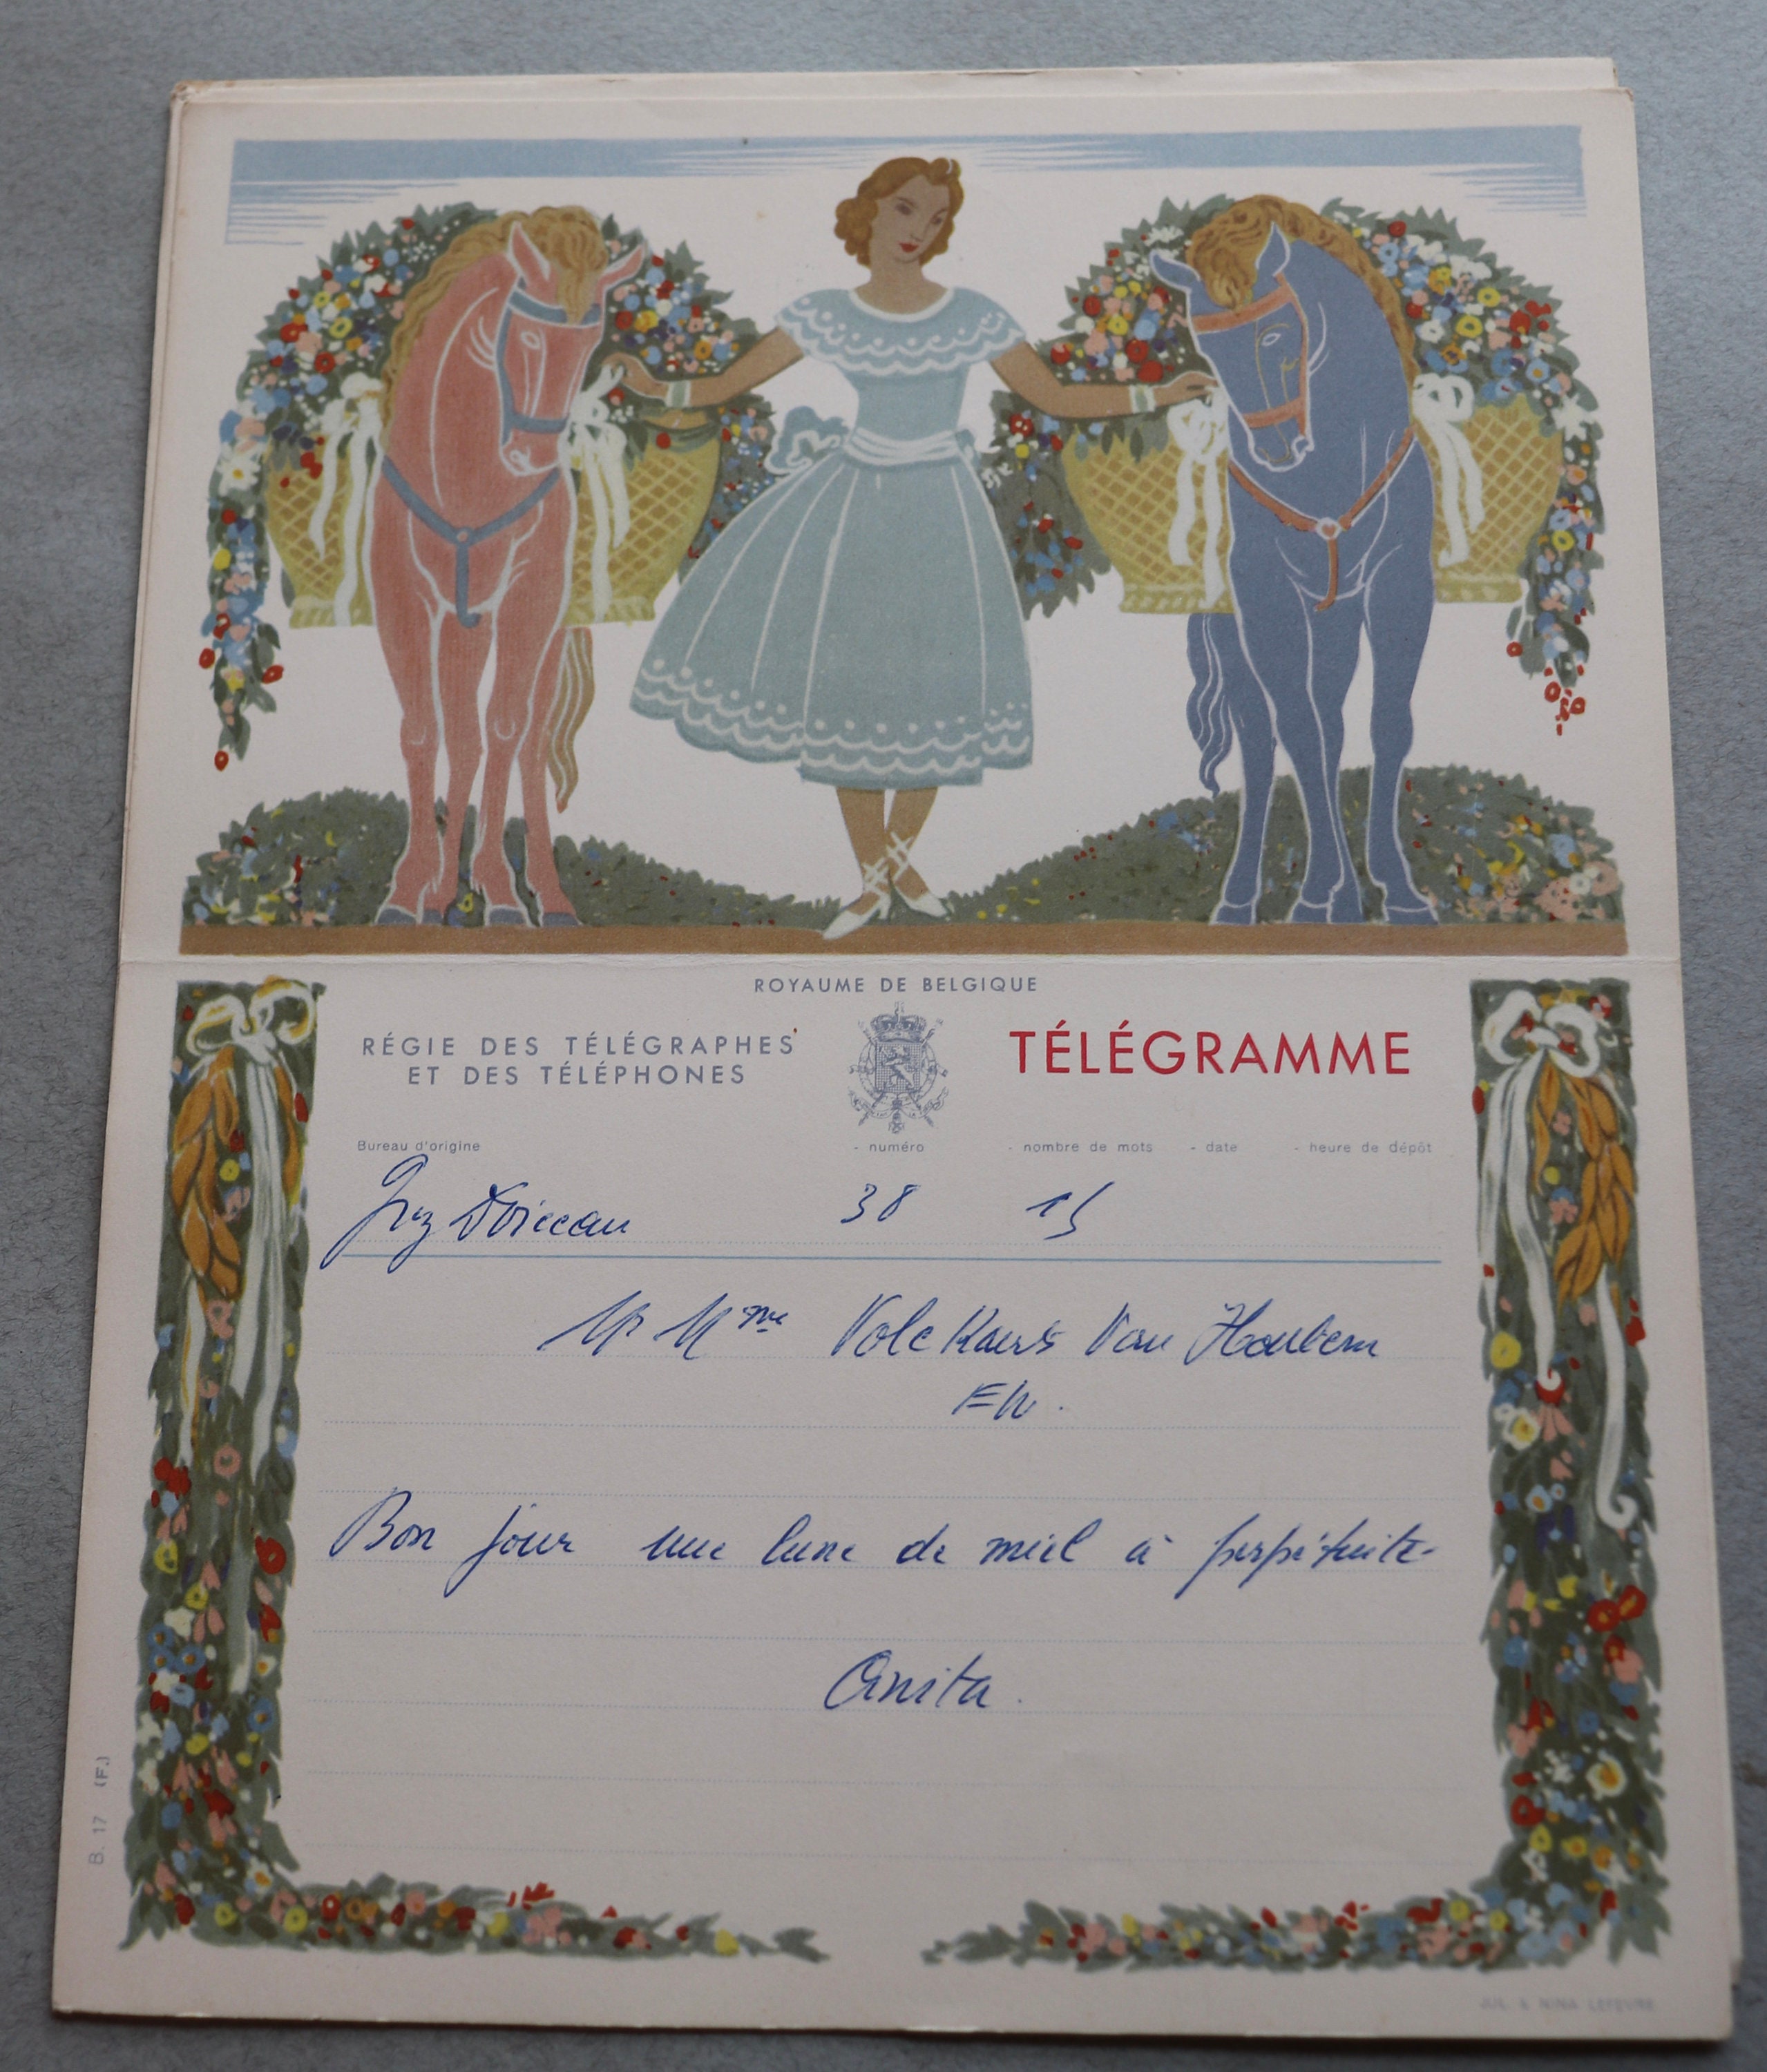 ROYAUME DE BELGIQUE
RÉGIE DES TÉLÉGRAPHES
ET DES TÉLÉPHONES
TÉLÉGRAMME
Bureau d'origine - numéro - nombre de mots - date - heure de dépôt
Grez Doiceau 38 15
Mr Mme Volckaerts Van Houbem
EV.
Bon jour une lune de miel à perpétuite
Anita.
B. 17 (F.)
JUL. & NINA LEFEVRE